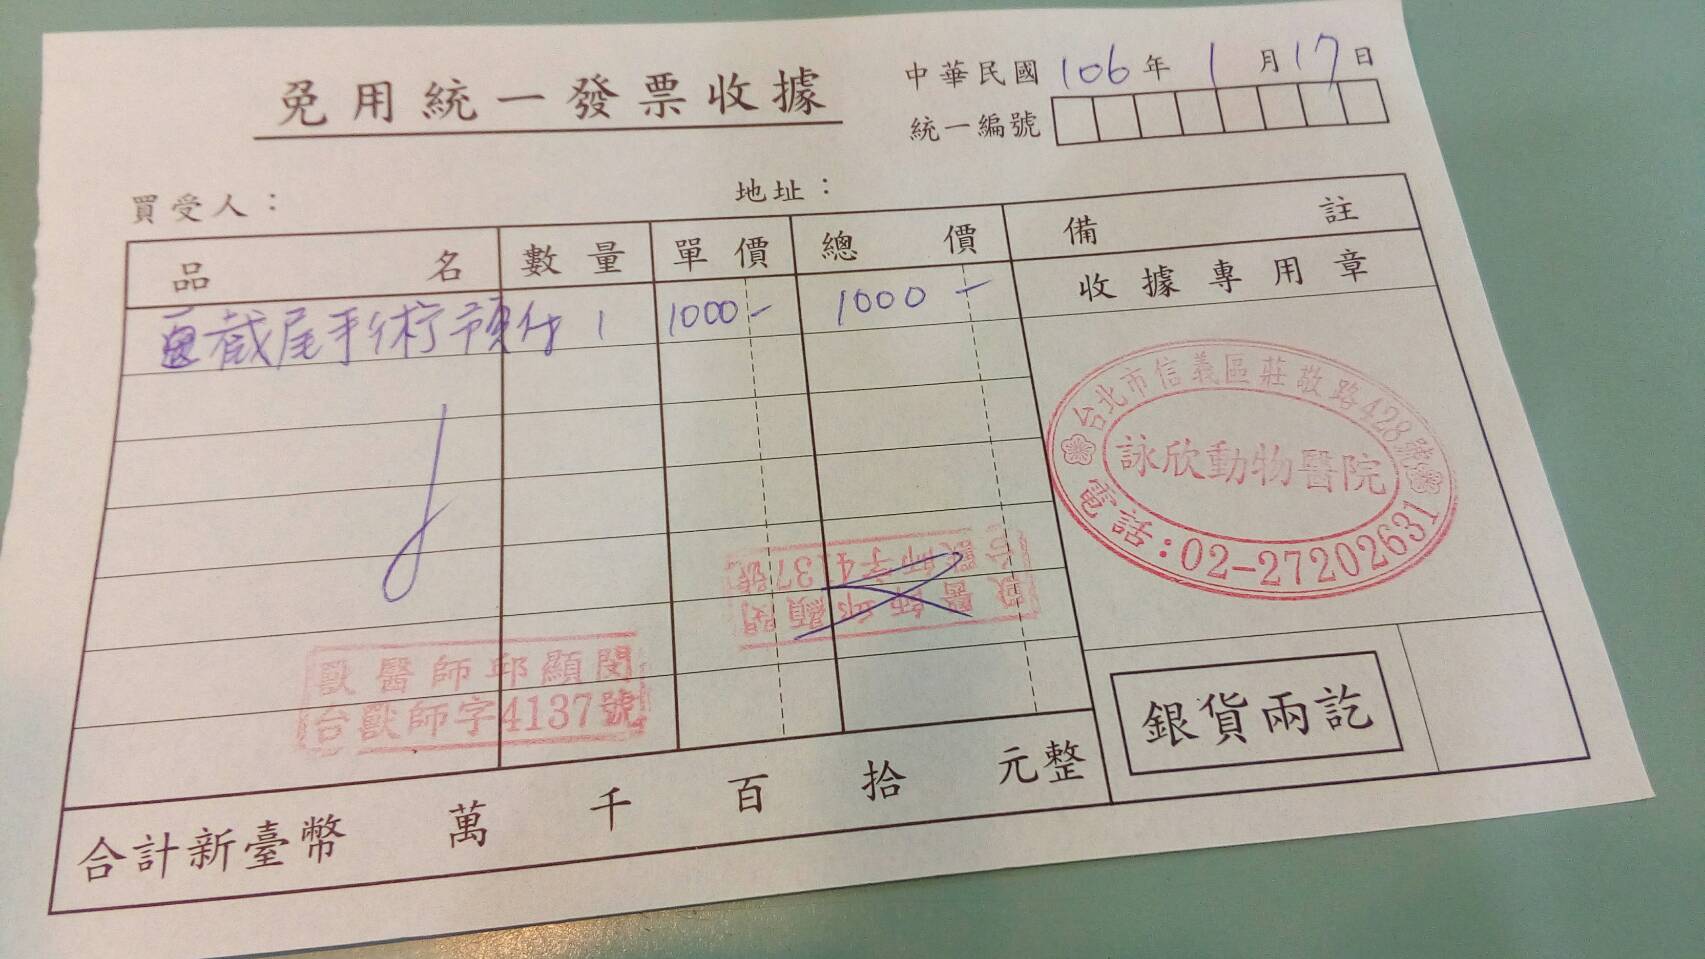 免用統一發票收據
中華民國 106 年 1 月 17 日
統一編號
買受人：
地址：
品名 數量 單價 總價 備註
收據專用章
截尾手術預付 1 1000- 1000 -
台北市信義區莊敬路428號
詠欣動物醫院
電話：02-27202631
台獸師字4137號
獸醫師邱顯閔
獸醫師邱顯閔
台獸師字4137號
銀貨兩訖
合計新臺幣 萬 千 百 拾 元整